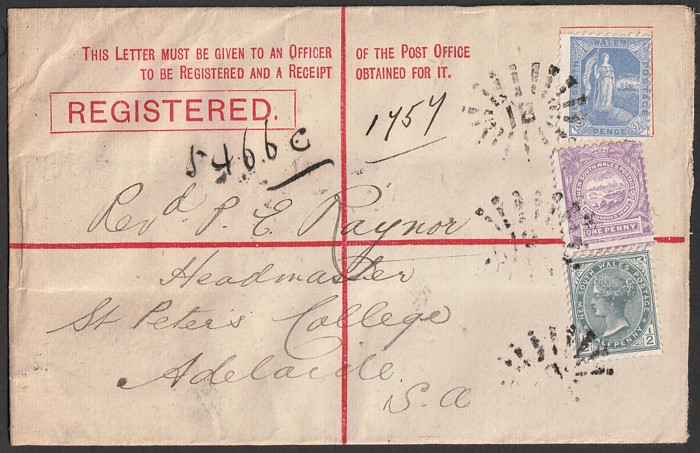 THIS LETTER MUST BE GIVEN TO AN OFFICER OF THE POST OFFICE
TO BE REGISTERED AND A RECEIPT OBTAINED FOR IT.
REGISTERED.
5466 C
1757
Revd. P. E. Raynor
Headmaster
St Peter's College
Adelaide
S. A
WALES
POSTAGE
PENCE
NEW SOUTH WALES POSTAGE
ONE PENNY
NEW SOUTH WALES POSTAGE
HALFPENNY
1/2